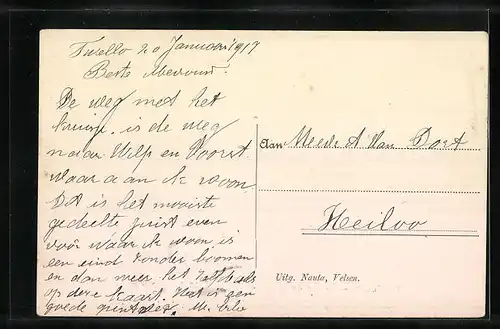 Twello 20 Januari 1917
Beste Mevrouw.
De weg met het
kruisje is de weg
naar Wilp en Voorst
waaraan ik woon.
Dit is het mooiste
gedeelte juist even
vóór waar ik woon is
een eind zonder boomen
en dan meer het
op deze kaart. Het is een
goede
Aan Meede A Van Dort
Heiloo
Uitg. Nauta, Velsen.